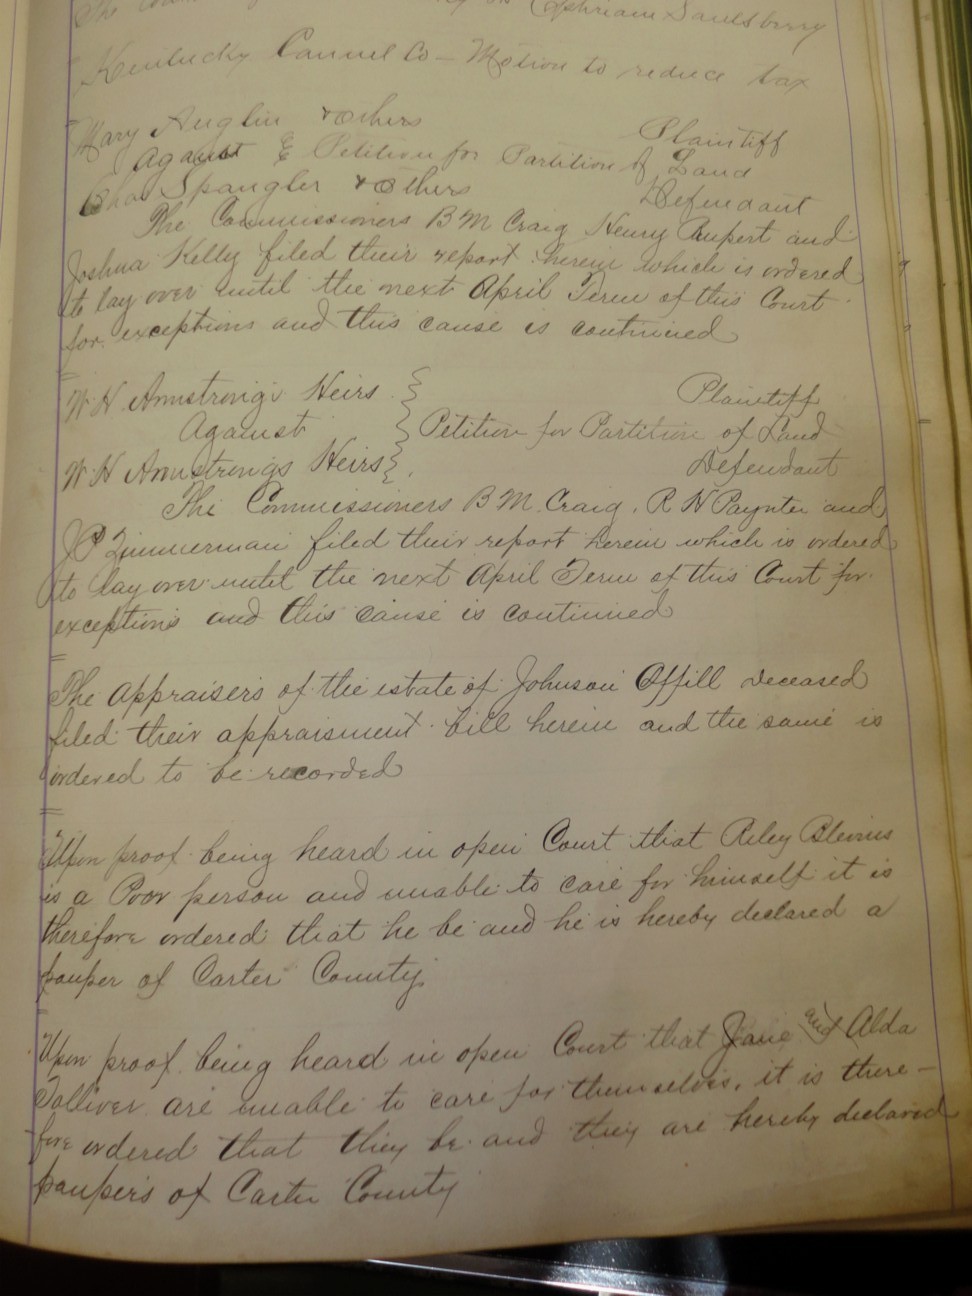 Ephriam Saulsberry
Kentucky Cannel Co - Motion to reduce tax
Mary Anglin & Others Plaintiff
Against Petition for Partition of Land
Chas Spangler & Others Defendant
The Commissioners B M Craig Henry Rupert and
Joshua Kelley filed their report herein which is ordered
to lay over until the next April Term of this Court
for exceptions and this cause is continued
W. H Armstrongs Heirs Plaintiff
Against Petition for Partition of Land
W. H Armstrongs Heirs Defendant
The Commissioners B M. Craig, R H Paynter and
J P Zimmerman filed their report herein which is ordered
to lay over until the next April Term of this Court for
exceptions and this cause is continued
The Appraisers of the estate of Johnson Offill deceased
filed their appraisment bill herein and the same is
ordered to be recorded
Upon proof being heard in open Court that Riley Blevins
is a Poor person and unable to care for himself it is
therefore ordered that he be and he is hereby declared a
pauper of Carter County
Upon proof being heard in open Court that Jane and Alda
Tolliver are unable to care for themselves, it is there-
fore ordered that they be and they are hereby declared
paupers of Carter County